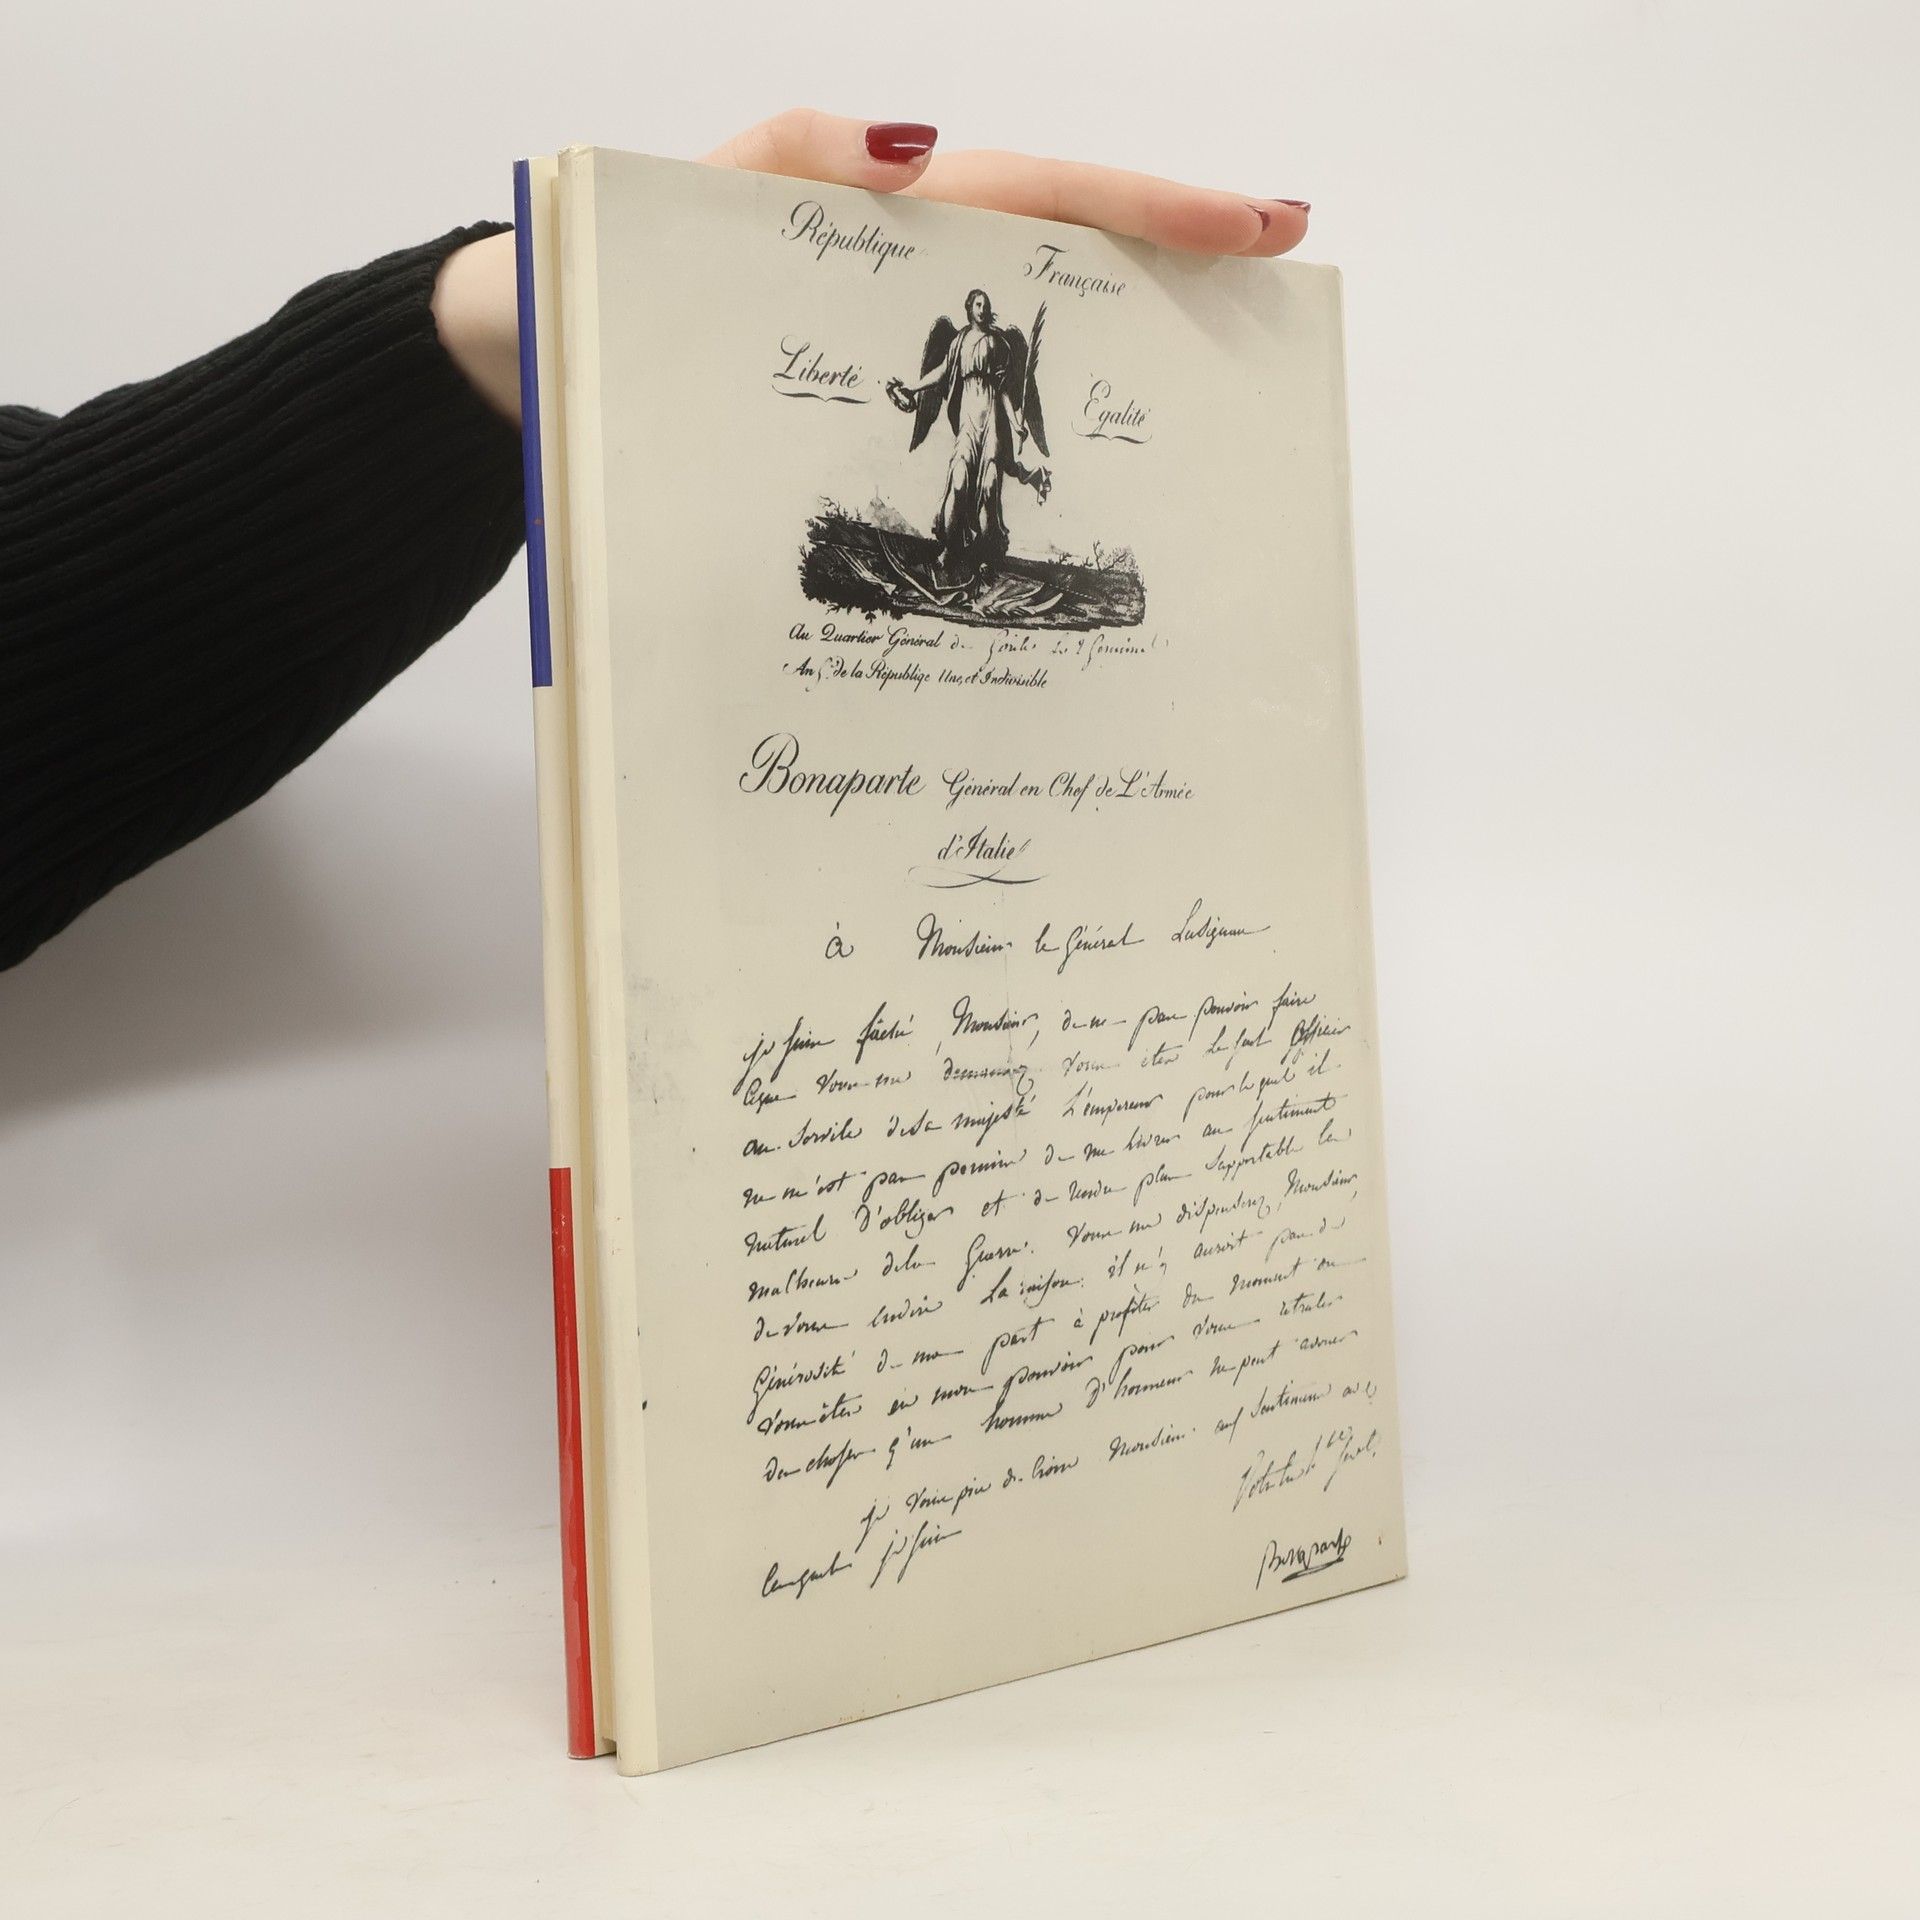 République Française
Liberté Egalité
Au Quartier Général de Goritz le 9 Germinal
An 5. de la Républiqe Une, et Indivisible
Bonaparte Général en Chef de L'Armée
d'Italie
à Monsieur le Général Lusignan
je suis fâché, Monsieur, de ne pas pouvoir faire
ce que vous me demandez vous êtes le seul officier
au service de sa majesté L'empereur pour lequel il
ne m'est pas permis de me livrer au sentiment
naturel D'obliger et de rendre plus supportable les
malheurs de la Guerre. Vous me dispenserez, Monsieur,
de vous en dire La raison. il n'y auroit pas de
Générosité de ma part à profiter du moment où
vous êtes en mon pouvoir pour vous
des choses q'un homme D'honneur ne peut avouer
je vous prie de croire Monsieur aux sentimens avec
lesquels je suis
Bonaparte